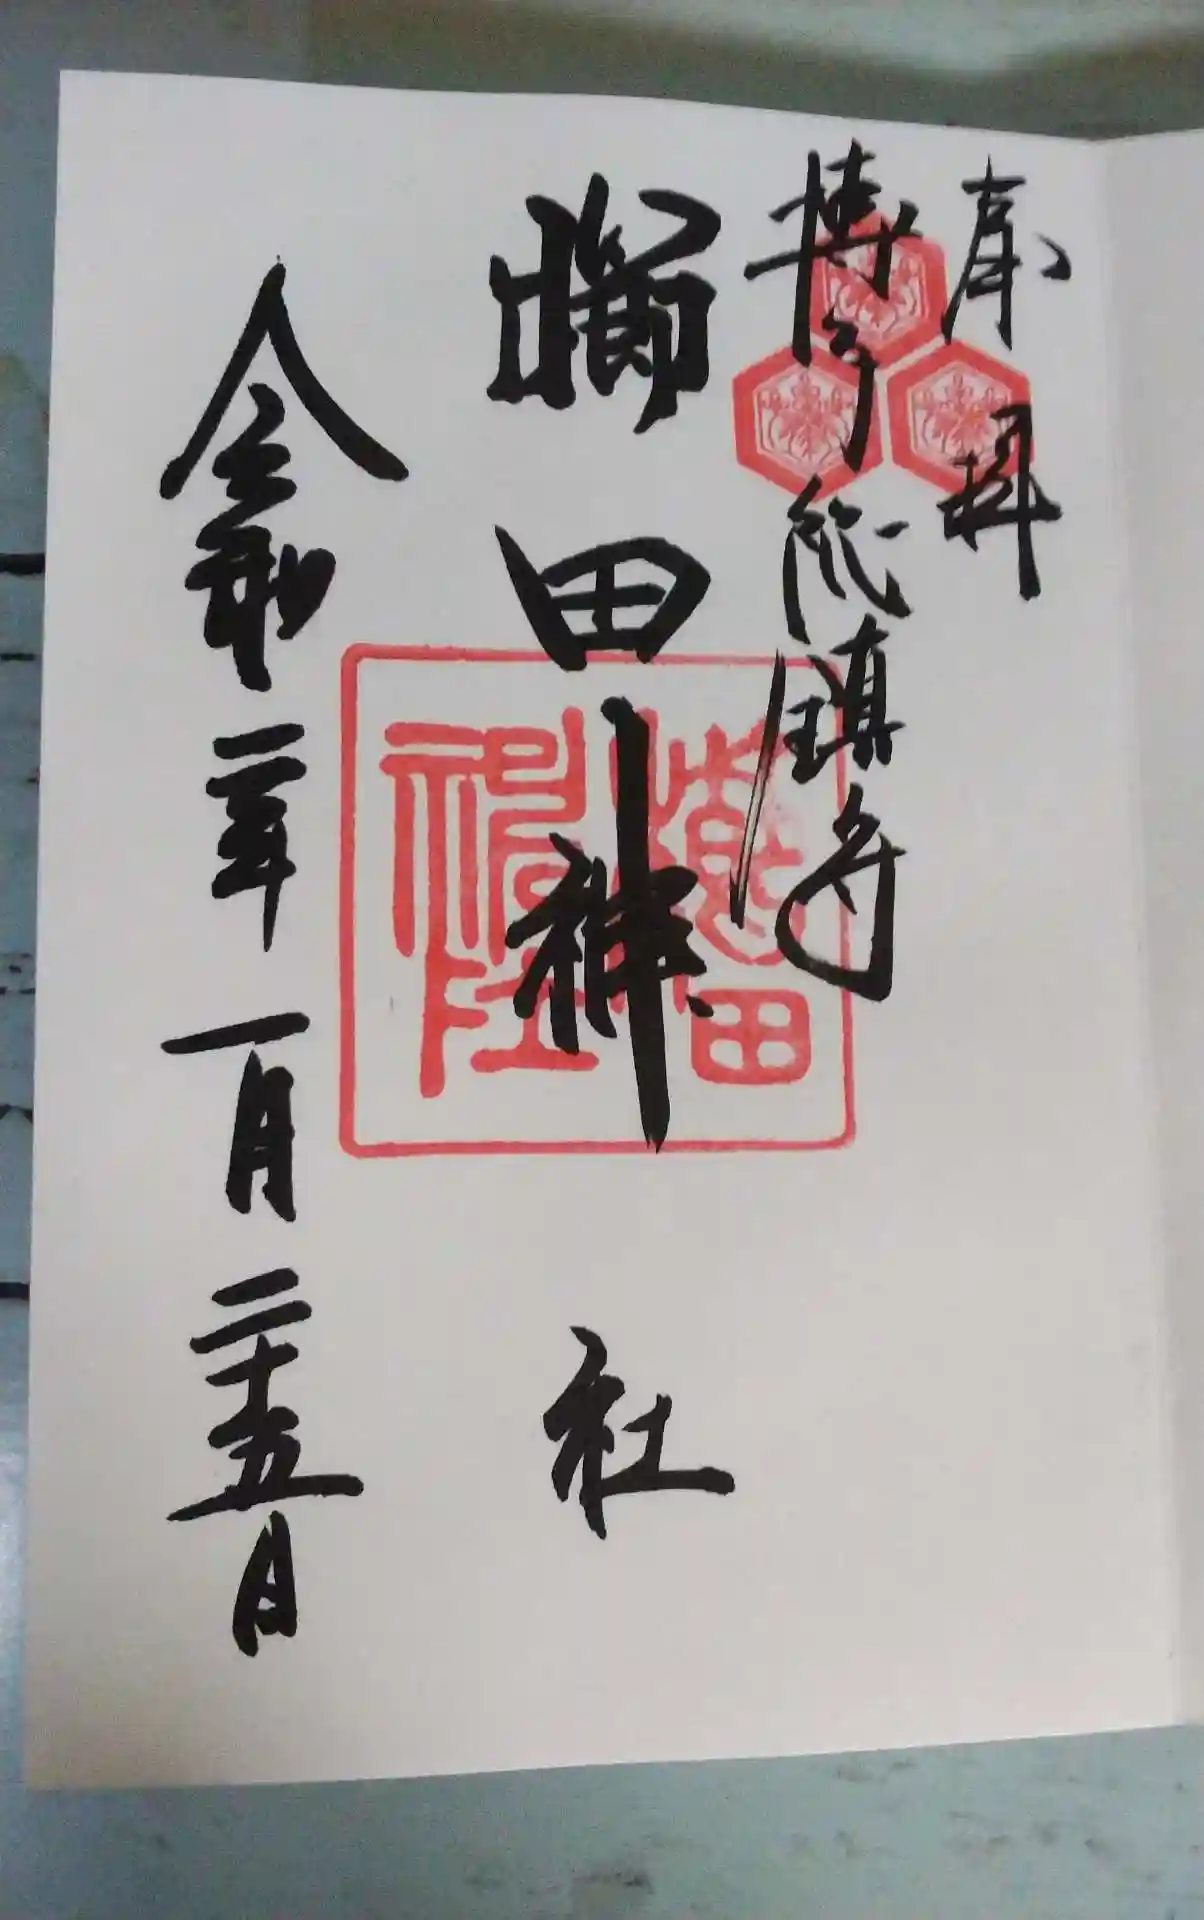 奉拝
博多総鎮守
櫛田神社
令和二年一月二十五日
櫛田
神社